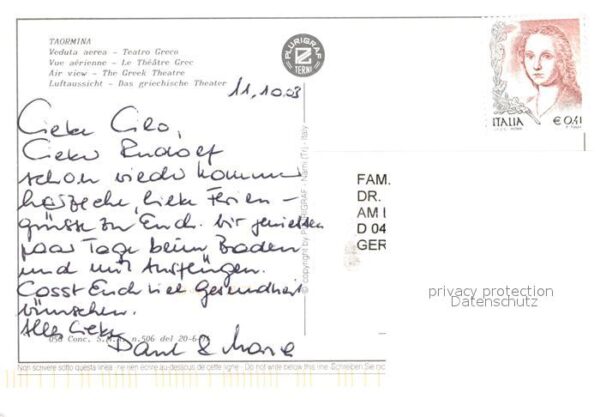 TAORMINA
Veduta aerea - Teatro Greco
Vue aérienne - Le Théâtre Grec
Air view - The Greek Theatre
Luftaussicht - Das griechische Theater
PLURIGRAF
TERNI
11.10.03
ITALIA € 0,41
Liebe
Lieber Rudolf
schon wieder kommen
herzliche, liebe Ferien-
grüsse zu Euch. Wir geniessen
paar Tage beim Baden
und mit Ausflügen.
Lasst Euch viel Gesundheit
wünschen.
Alles Liebe
© copyright by PLURIGRAF - Narni (Tr) - Italy
FAM.
DR.
AM
D 04
GER
privacy protection
Datenschutz
n.506 del 20-6-
Non scrivere sotto questa linea - ne rien écrire au-dessous de cette ligne - Do not write below this line - Schreiben Sie